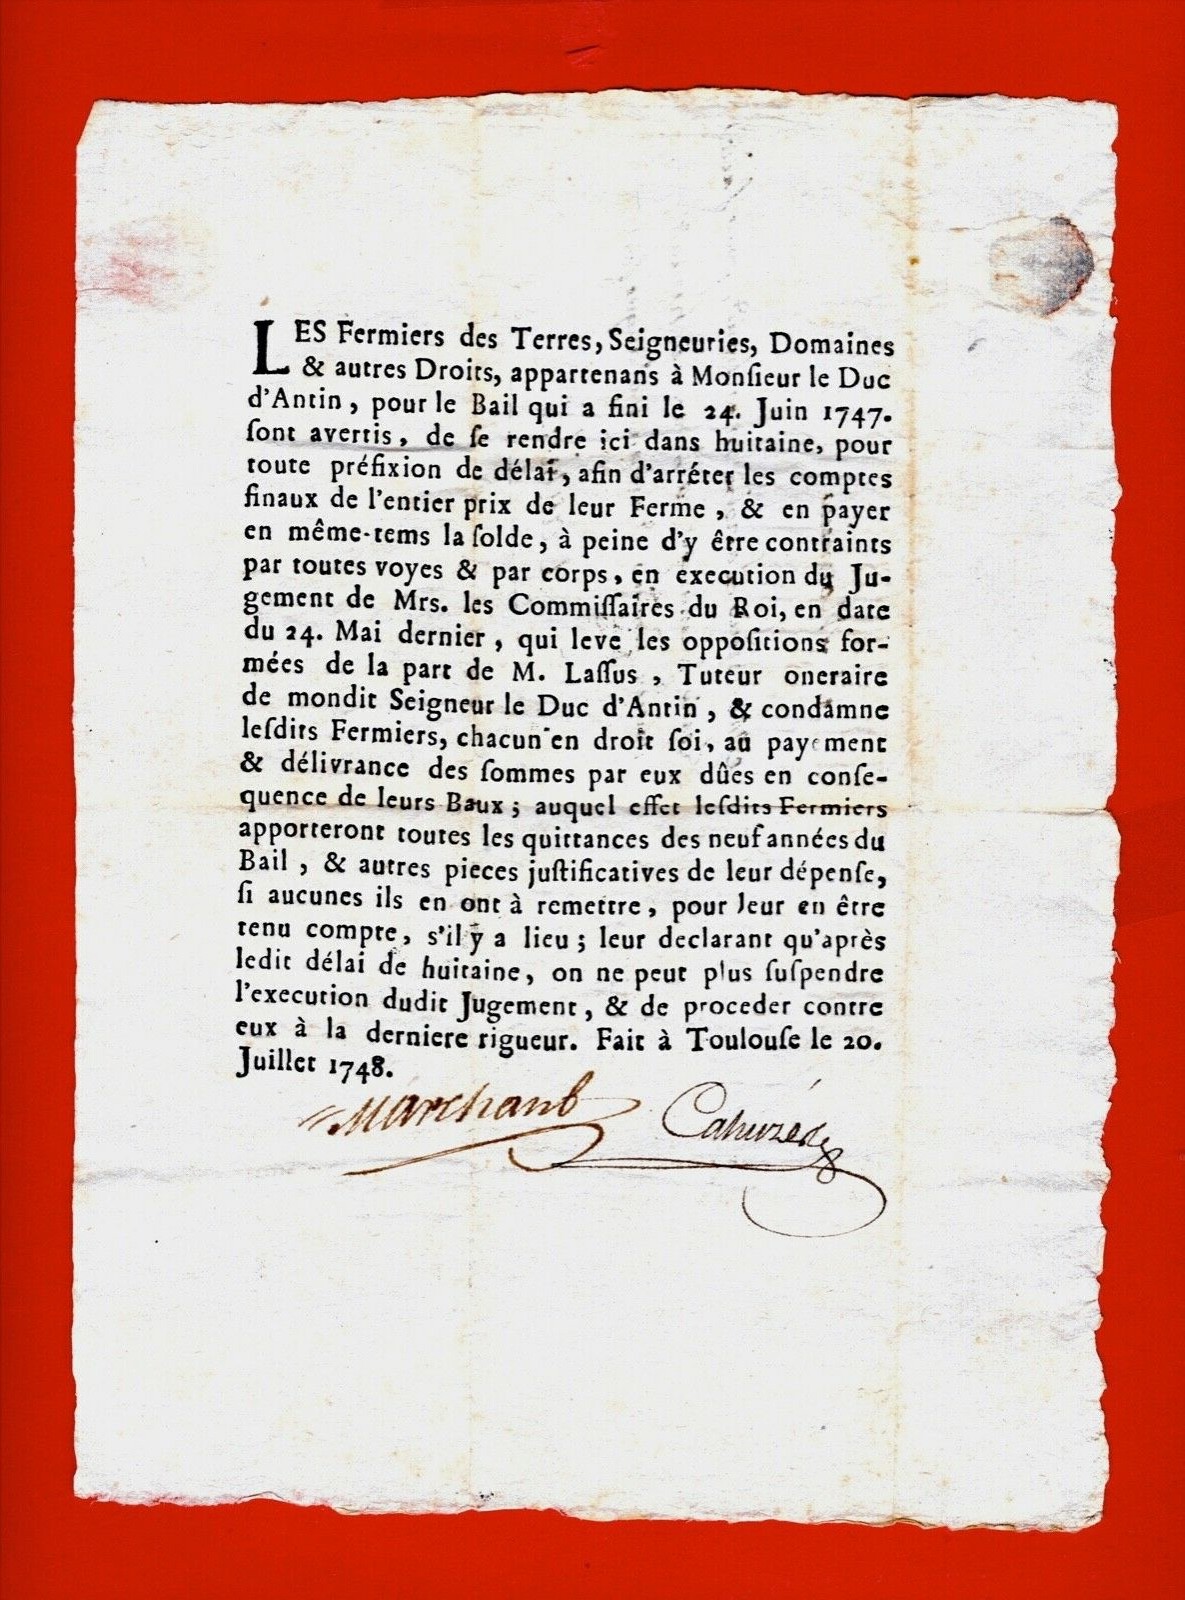 LES Fermiers des Terres, Seigneuries, Domaines
& autres Droits, appartenans à Monſieur le Duc
d'Antin, pour le Bail qui a fini le 24. Juin 1747.
ſont avertis, de ſe rendre ici dans huitaine, pour
toute préfixion de délai, afin d'arréter les comptes
finaux de l'entier prix de leur Ferme, & en payer
en même-tems la ſolde, à peine d'y être contraints
par toutes voyes & par corps, en execution du Ju-
gement de Mrs. les Commiſſaires du Roi, en date
du 24. Mai dernier, qui leve les oppoſitions for-
mées de la part de M. Laſſus, Tuteur oneraire
de mondit Seigneur le Duc d'Antin, & condamne
leſdits Fermiers, chacun en droit ſoi, au payement
& délivrance des ſommes par eux dûes en conſe-
quence de leurs Baux; auquel effet leſdits Fermiers
apporteront toutes les quittances des neuf années du
Bail, & autres pieces juſtificatives de leur dépenſe,
ſi aucunes ils en ont à remettre, pour leur en être
tenu compte, s'il y a lieu; leur declarant qu'après
ledit délai de huitaine, on ne peut plus ſuſpendre
l'execution dudit Jugement, & de proceder contre
eux à la derniere rigueur. Fait à Toulouſe le 20.
Juillet 1748.
Marchand Cahuzéd